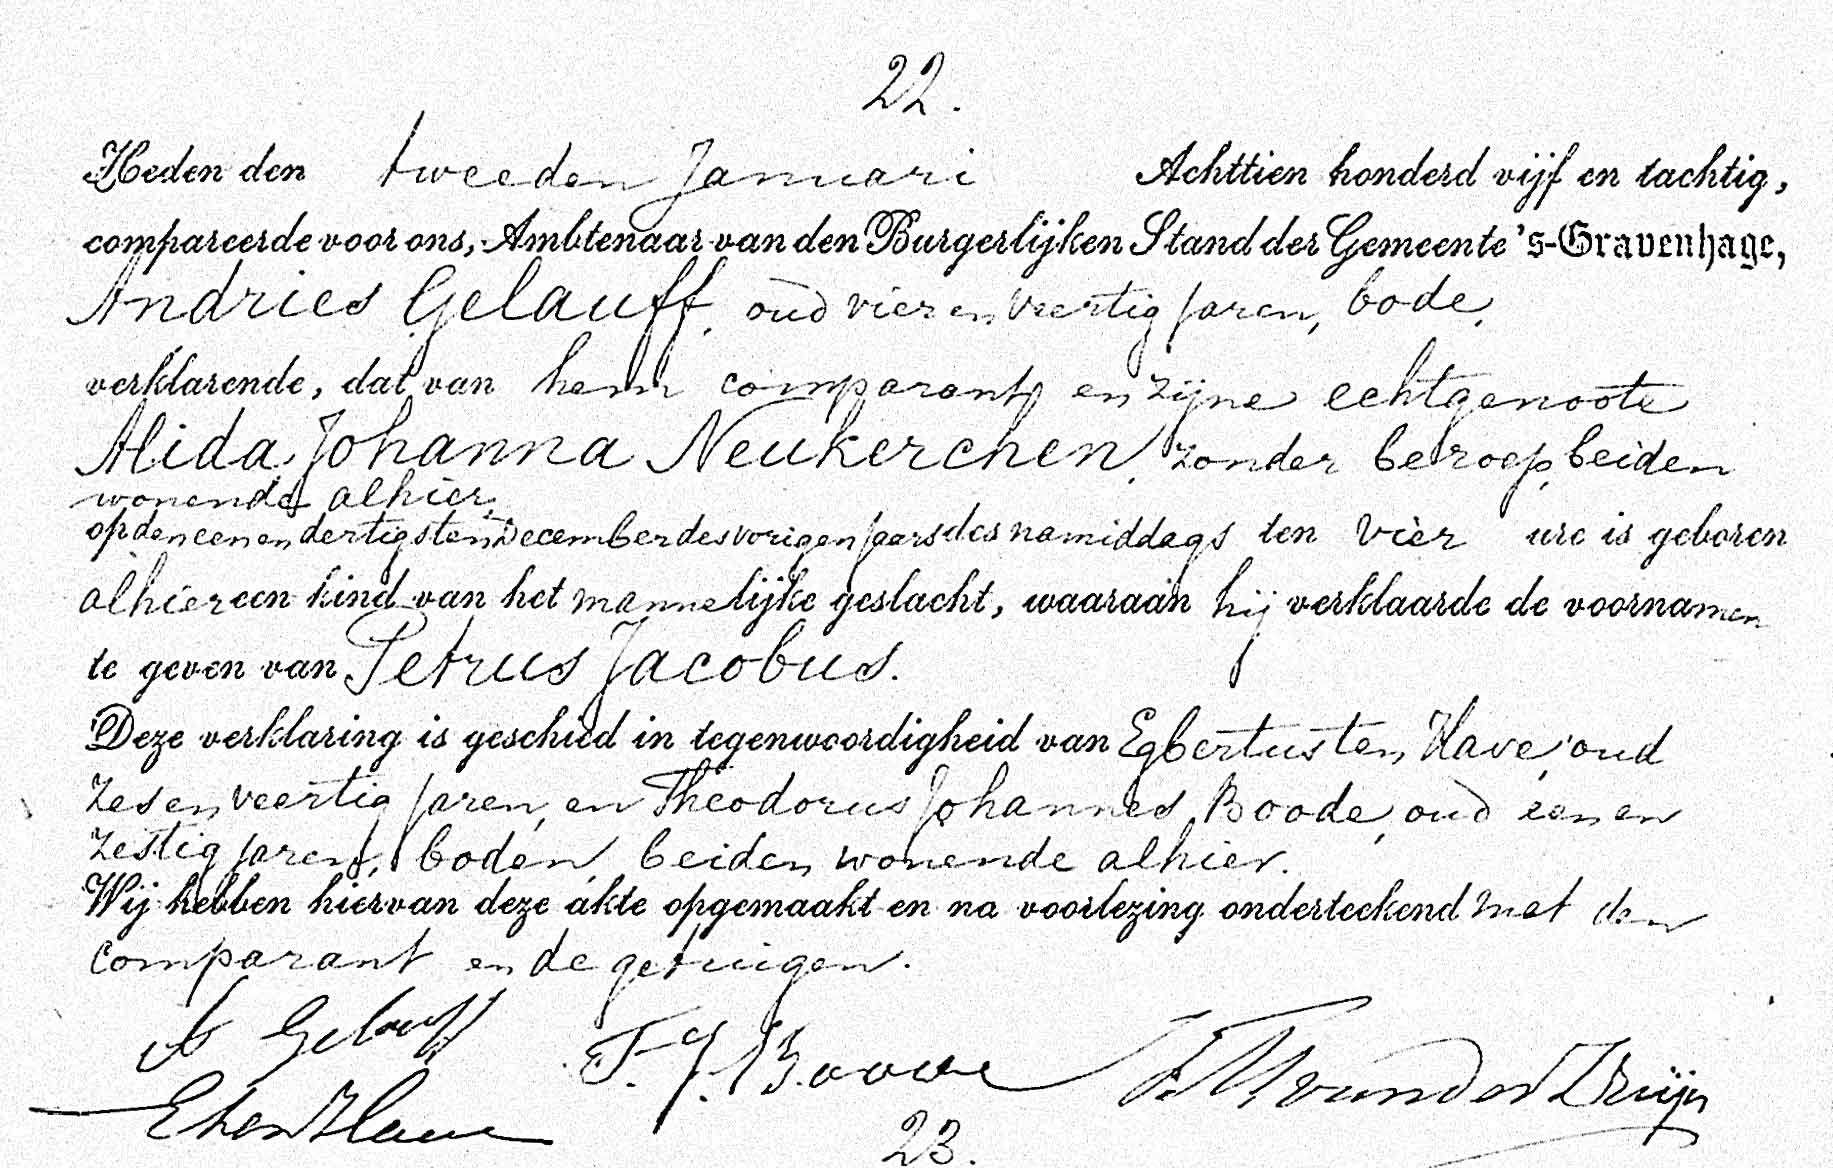 22.
Heden den tweeden Januari Achttien honderd vijf en tachtig,
compareerde voor ons, Ambtenaar van den Burgerlijken Stand der Gemeente 's-Gravenhage,
Andries Gelauff, oud vier en veertig jaren, bode,
verklarende, dat van hem comparant en zijne echtgenoote
Alida Johanna Neukerchen, zonder beroep, beiden
wonende alhier,
op den een en dertigsten December des vorigen jaars des namiddags ten vier ure is geboren
alhier een kind van het mannelijke geslacht, waaraan hij verklaarde de voornamen
te geven van Petrus Jacobus.
Deze verklaring is geschied in tegenwoordigheid van Egbertus ten Have, oud
zes en veertig jaren, en Theodorus Johannes Boode, oud een en
zestig jaren, boden, beiden wonende alhier.
Wij hebben hiervan deze akte opgemaakt en na voorlezing onderteekend met den
comparant en de getuigen.
A Gelauff T. J. Boode van der
E ten Have
23.